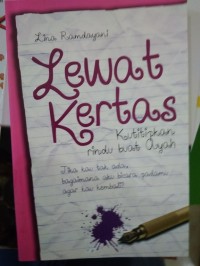 Lina Ramdayani
Lewat
Kertas
Kutitipkan
rindu buat Ayah
Jika kau tak ada,
bagaimana aku bicara padamu
agar kau kembali?